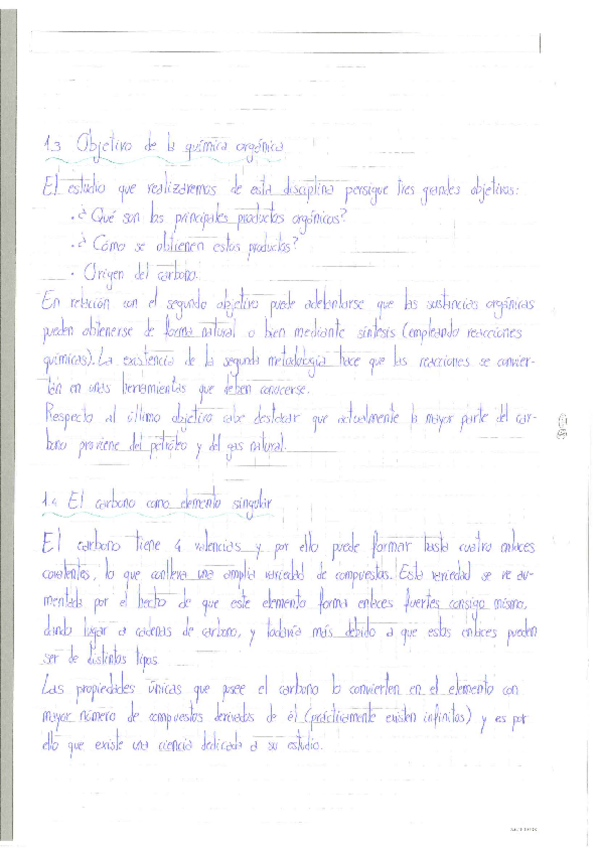 1.3 Objetivo de la química orgánica
El estudio que realizaremos de esta disciplina persigue tres grandes objetivos:
· ¿Qué son los principales productos orgánicos?
· ¿Cómo se obtienen estos productos?
· Origen del carbono.
En relación con el segundo objetivo puede adelantarse que las sustancias orgánicas
pueden obtenerse de forma natural o bien mediante síntesis (empleando reacciones
químicas). La existencia de la segunda metodología hace que las reacciones se convier-
tan en unas herramientas que deben conocerse.
Respecto al último objetivo cabe destacar que actualmente la mayor parte del car-
bono proviene del petróleo y del gas natural.
1.4 El carbono como elemento singular
El carbono tiene 4 valencias y por ello puede formar hasta cuatro enlaces
covalentes, lo que conlleva una amplia variedad de compuestos. Esta variedad se ve au-
mentada por el hecho de que este elemento forma enlaces fuertes consigo mismo,
dando lugar a cadenas de carbono, y todavía más debido a que estos enlaces pueden
ser de distintos tipos
Las propiedades únicas que posee el carbono lo convierten en el elemento con
mayor número de compuestos derivados de él (prácticamente existen infinitos) y es por
ello que existe una ciencia dedicada a su estudio.